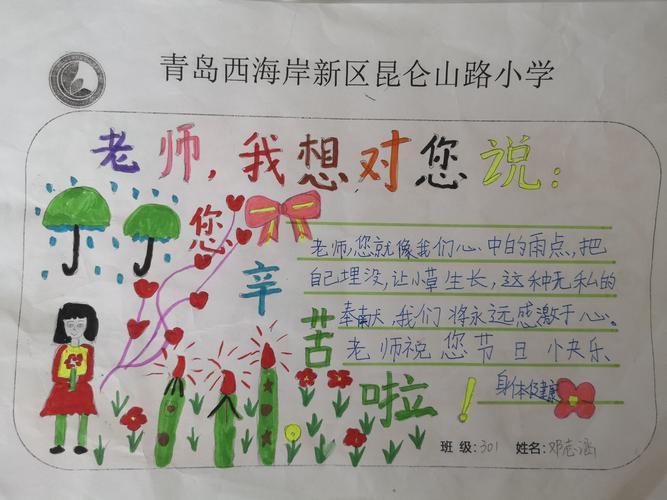 青岛西海岸新区昆仑山路小学
老师,我想对您说:
您辛苦啦!
老师,您就像我们心中的雨点,把
自己埋没,让小草生长,这种无私的
奉献,我们将永远感激于心。
老师祝您节日快乐
身体健康
班级:301 姓名:邓志涵